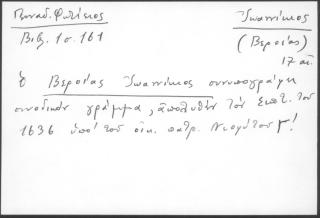 Γεναδ. Φωτίκιος
Βιβλ. 1 σ. 161
Ἰωαννίκιος
(Βεροίας)
17 αἰ.
Ὁ Βεροίας Ἰωαννίκιος συνυπογράφει
συνοδικόν γράμμα, ἀπολυθέν τόν Σεπτ. του
1636 ὑπό του οἰκ. πατρ. Νεοφύτου Γ!